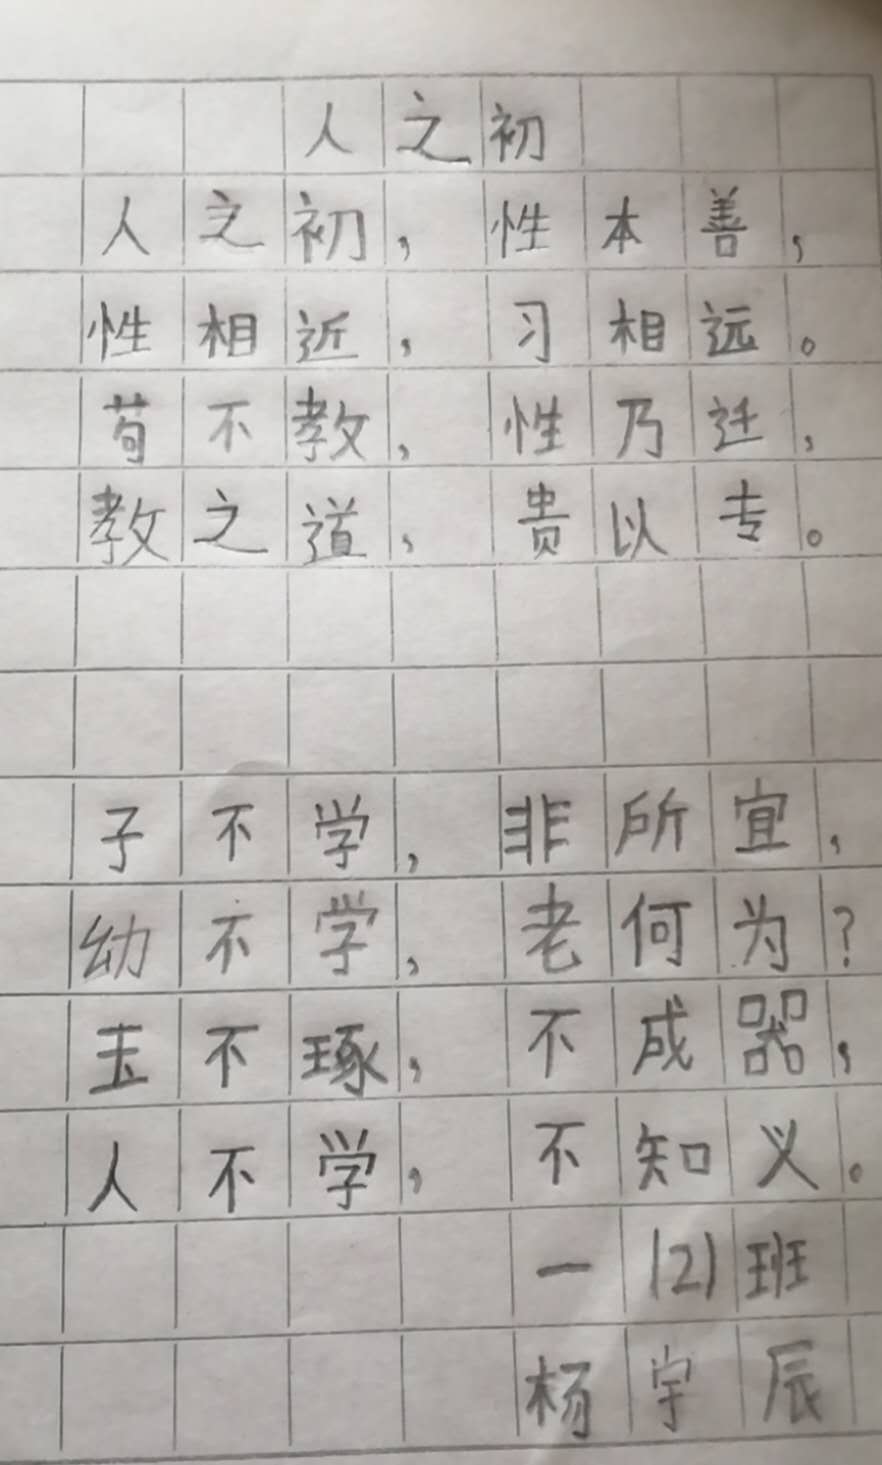 人之初
人之初，性本善，
性相近，习相远。
苟不教，性乃迁，
教之道，贵以专。
子不学，非所宜，
幼不学，老何为？
玉不琢，不成器，
人不学，不知义。
一(2)班
杨宇辰